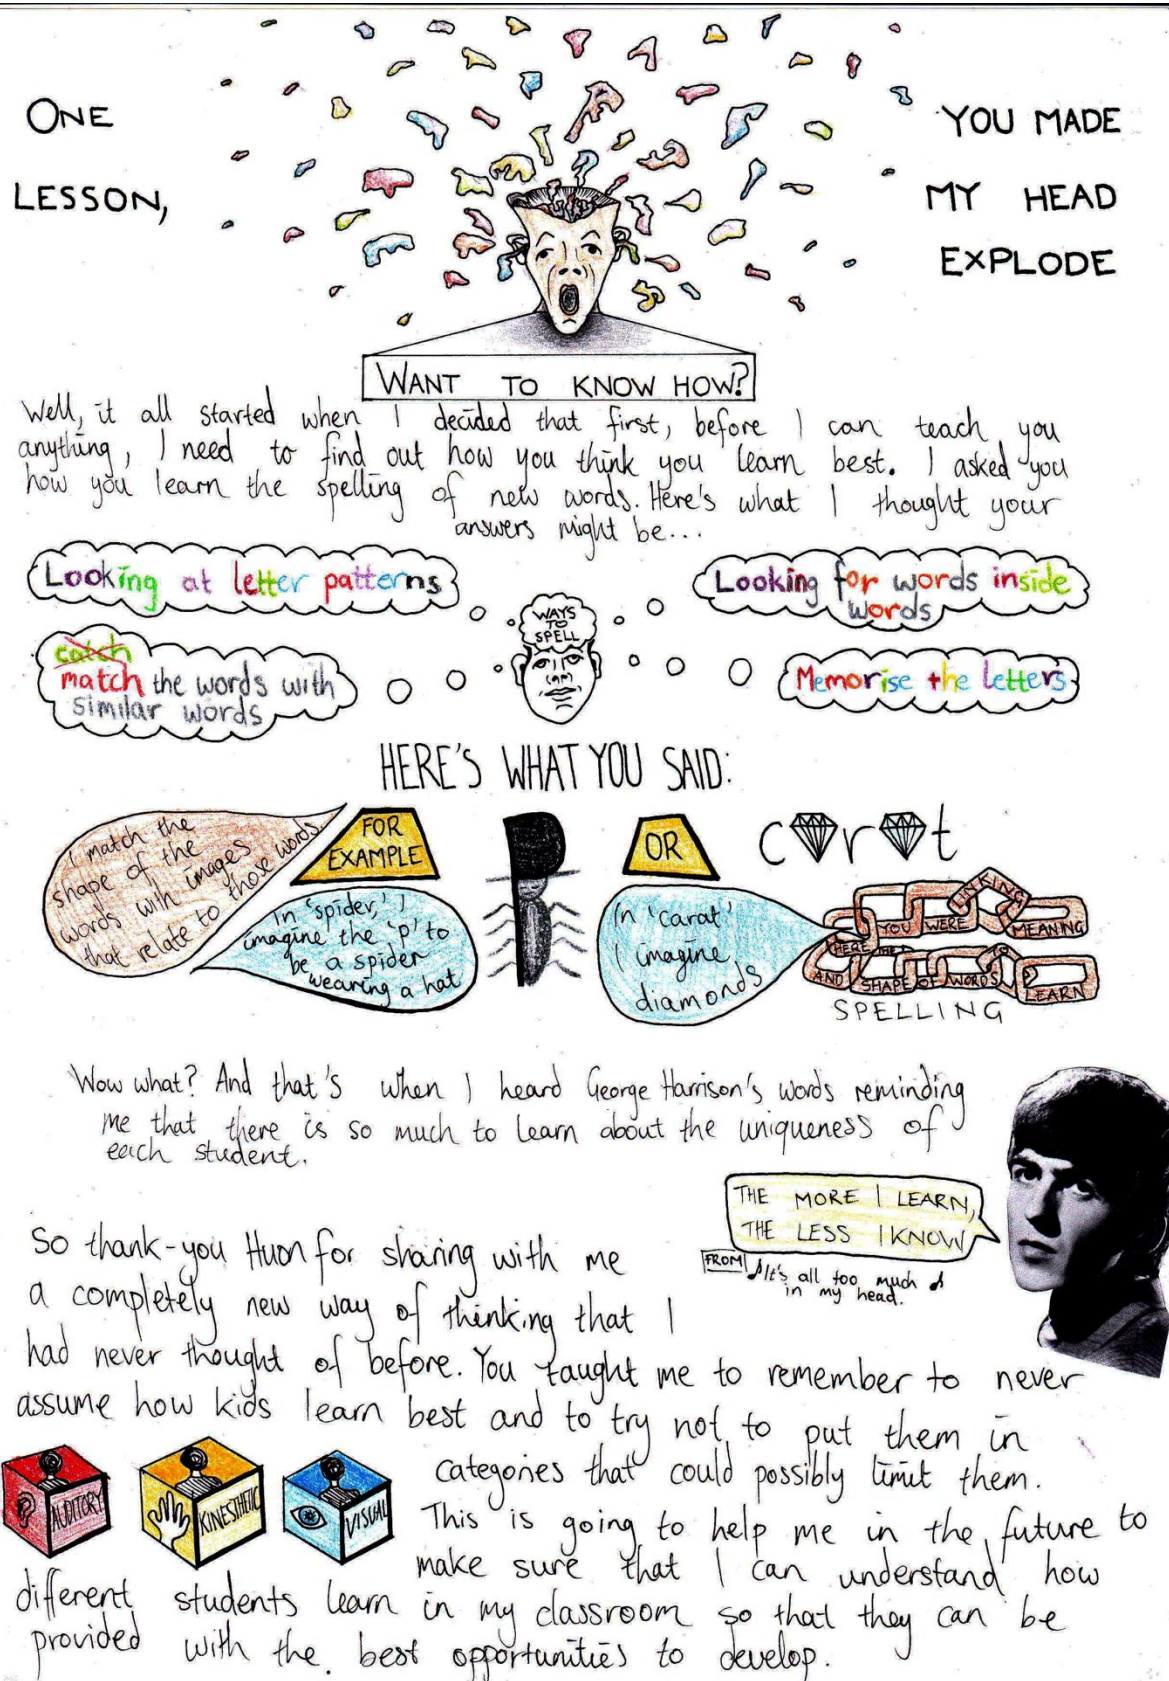 ONE
LESSON,
YOU MADE
MY HEAD
EXPLODE
WANT TO KNOW HOW?
Well, it all started when I decided that first, before I can teach you
anything, I need to find out how you think you learn best. I asked you
how you learn the spelling of new words. Here's what I thought your
answers might be...
Looking at letter patterns
Looking for words inside
words
WAYS
TO
SPELL
catch
match the words with
similar words
Memorise the letters
HERE'S WHAT YOU SAID:
I match the
shape of the
words with images
that relate to those words
FOR
EXAMPLE
In 'spider,' I
imagine the 'p' to
be a spider
wearing a hat
OR
In 'carat'
I imagine
diamonds
c r t
HERE YOU WERE LINKING MEANING
AND THE SHAPE OF WORDS LEARN
SPELLING
Wow what? And that's when I heard George Harrison's words reminding
me that there is so much to learn about the uniqueness of
each student.
THE MORE I LEARN,
THE LESS I KNOW
FROM It's all too much
in my head.
So thank-you Huon for sharing with me
a completely new way of thinking that I
had never thought of before. You taught me to remember to never
assume how kids learn best and to try not to put them in
categories that could possibly limit them.
AUDITORY
KINESTHETIC
VISUAL
This is going to help me in the future to
make sure that I can understand how
different students learn in my classroom so that they can be
provided with the best opportunities to develop.